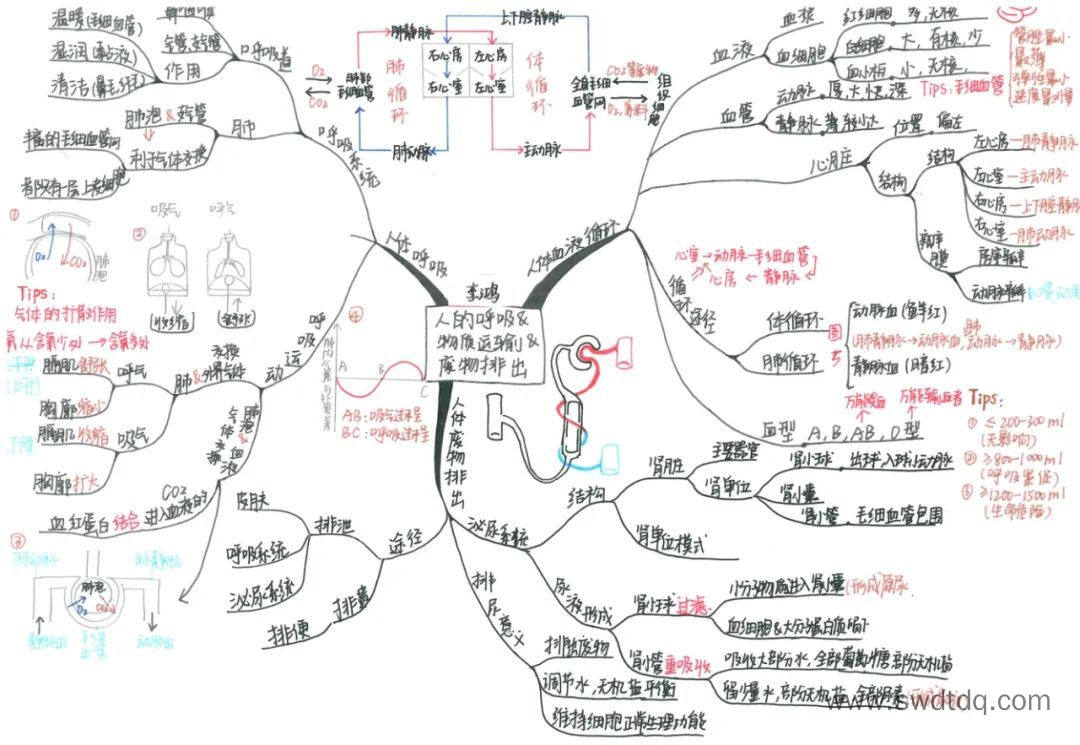 温暖(毛细血管)
湿润(黏液)
清洁(鼻毛,纤毛)
气管,支气管
作用
呼吸道
肺泡&支气管
丰富的毛细血管网
利于气体交换
都只有一层上皮细胞
肺
呼吸系统
人体呼吸
O2
CO2
肺部
毛细血管
肺静脉
肺循环
肺动脉
上下腔静脉
右心房
右心室
左心房
左心室
体循环
主动脉
全身毛细
血管网
组织细胞
血液
血浆
血细胞
红细胞
白细胞
大,有核,少
血小板
小,无核,
血管
动脉
厚,大,快,深
静脉
Tips:毛细血管
管腔最小
最薄
弹性最小
速度最慢
心脏
位置
偏左
结构
结构
左心房—肺静脉
左心室—主动脉
右心房—上下腔静脉
右心室—肺动脉
瓣膜
房室瓣
动脉瓣
人体血液循环
循环途径
心室→动脉→毛细血管
心房←静脉←
体循环
肺循环
动脉血(鲜红)
(肺静脉→动脉血,肺动脉→静脉)
静脉血(暗红)
万能受血
万能输血者
血型
A,B,AB,O型
Tips:
① ≤200-300ml
(无影响)
② ≥800-1000ml
(呼吸急促)
③ ≥1200-1500ml
(生命危险)
李鸿
人的呼吸&
物质运输&
废物排出
①
O2
CO2
肺泡
②
吸气
呼气
Tips:
气体的扩散作用
氧从含氧少处→含氧多处
④
肺内气压与外界差
A
B
C
AB:吸气过程
BC:呼吸过程
呼吸运动
肺&外界气体交换
呼气
膈肌舒张
胸廓缩小
吸气
膈肌收缩
胸廓扩大
肺泡&血液气体交换
CO2
进入血液的
血红蛋白结合
③
肺泡
O2
CO2
毛细血管
人体废物排出
途径
排泄
皮肤
呼吸系统
泌尿系统
排粪
排便
泌尿系统
结构
肾脏
主要器官
肾单位
肾小球
出球,入球小动脉
肾小囊
肾小管
毛细血管包围
肾单位模式
尿液形成
肾小球过滤
小分子物质进入肾小囊(形成)原尿
血细胞&大分子蛋白质留下
肾小管重吸收
吸收大部分水,全部葡萄糖,部分无机盐
留少量水,部分无机盐,全部尿素
排尿意义
排除废物
调节水,无机盐平衡
维持细胞正常生理功能
www.swdtdq.com